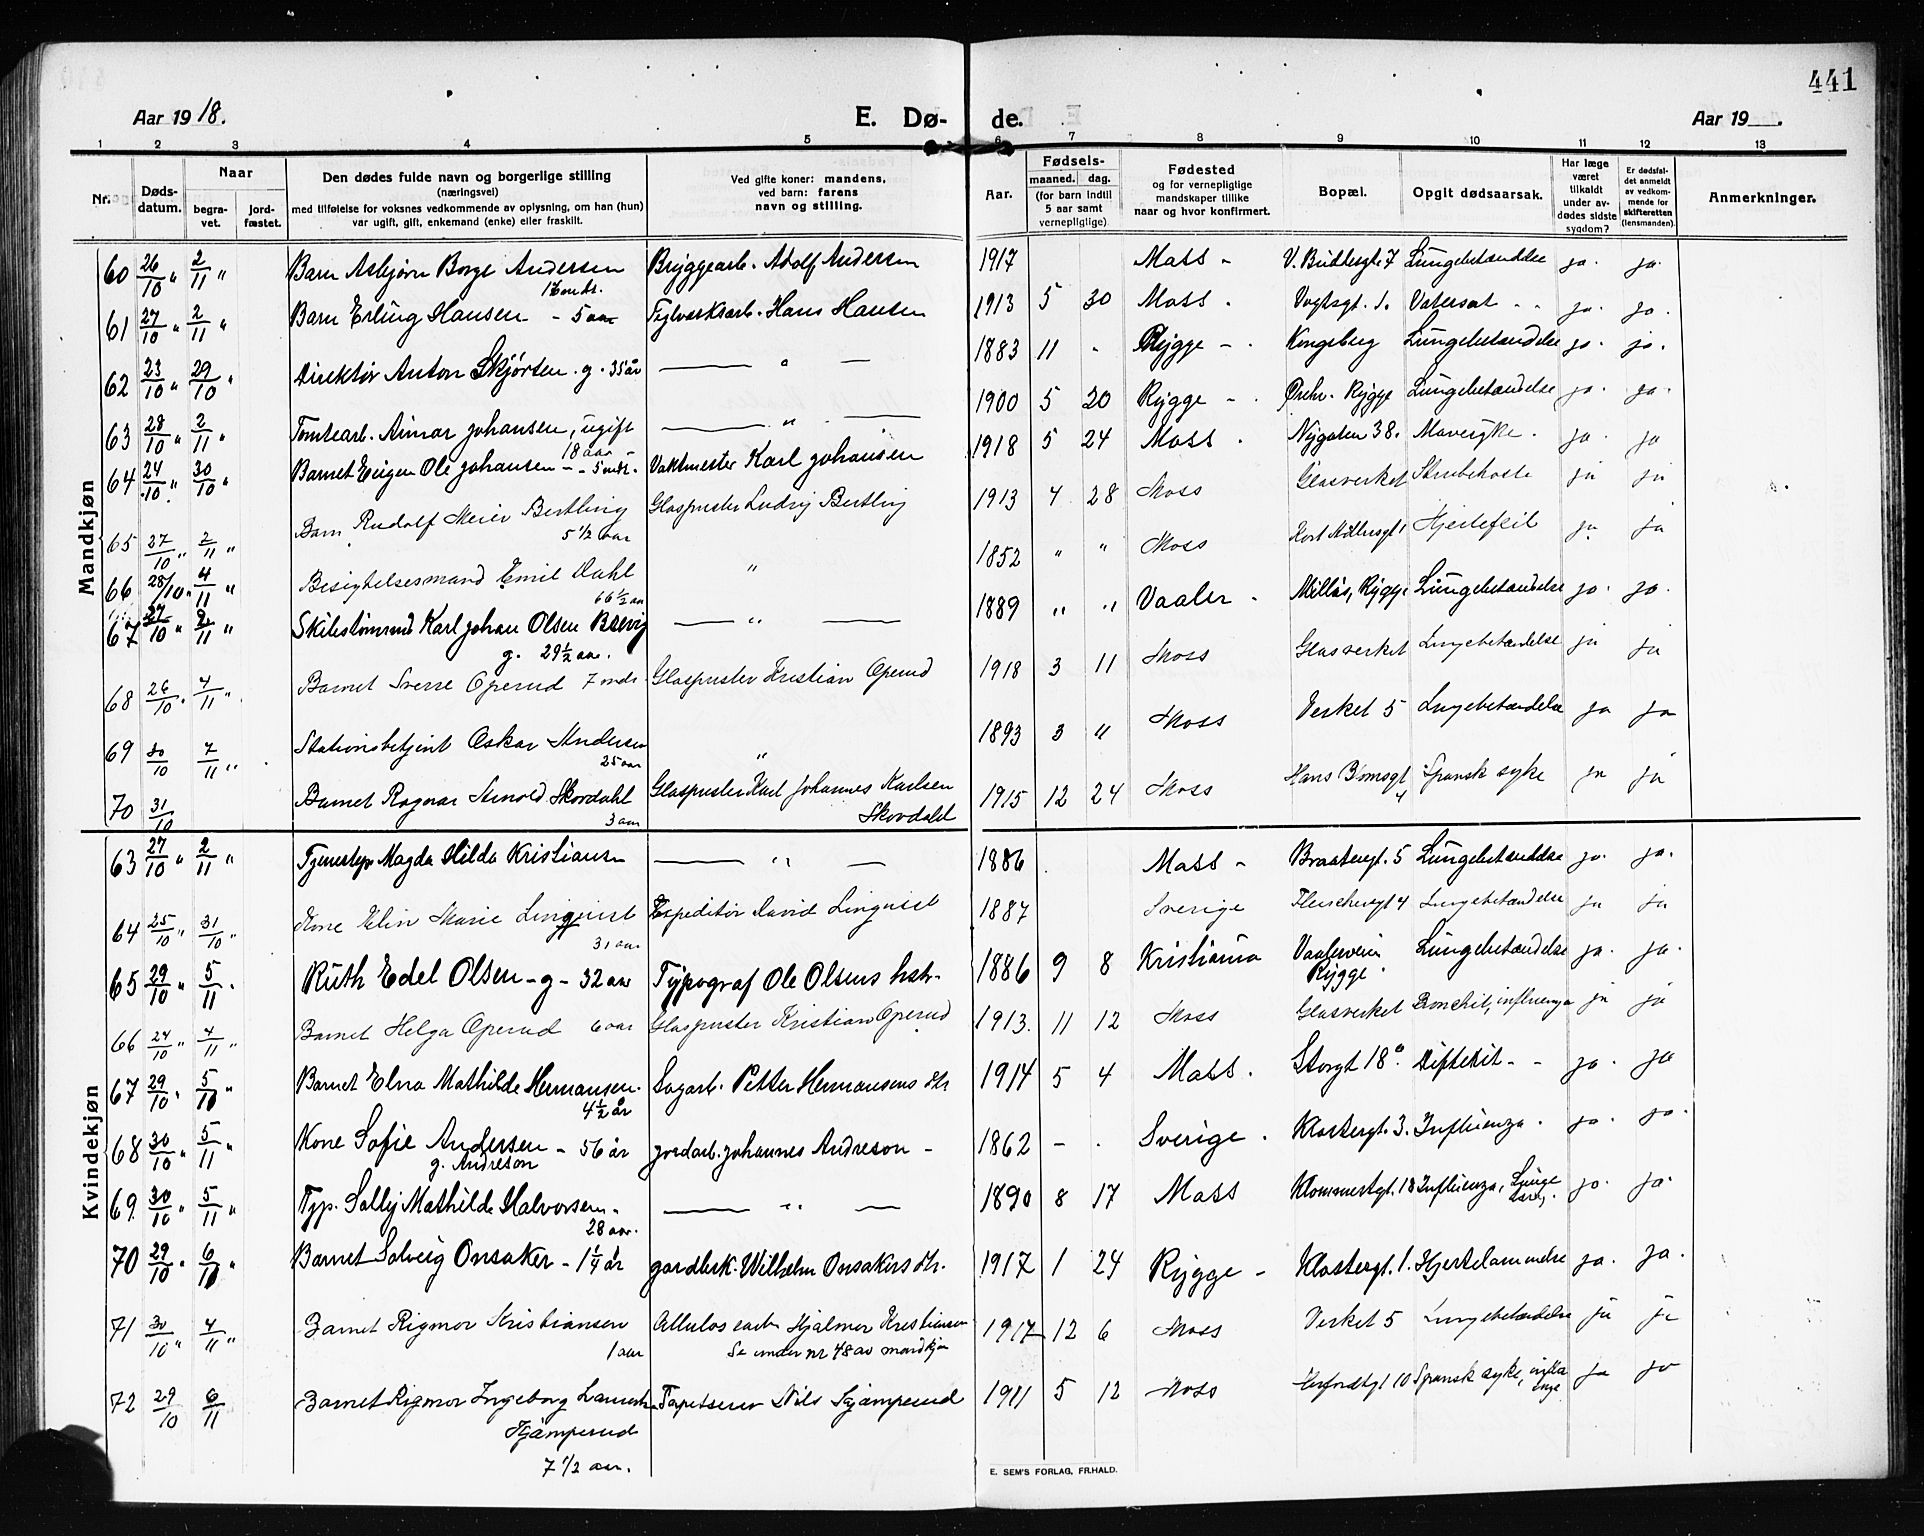 441
Aar 1918.
E. Dø-
de.
Aar 19
1 2 3 4 5 6 7 8 9 10 11 12 13
Nr.
Døds-
datum.
Naar
begra-
vet.
jord-
fæstet.
Den dødes fulde navn og borgerlige stilling
(næringsvei)
med tilføielse for voksnes vedkommende av oplysning, om han (hun)
var ugift, gift, enkemand (enke) eller fraskilt.
Ved gifte koner: mandens,
ved barn: farens
navn og stilling.
Aar.
Fødsels-
maaned. dag.
(for barn indtil
5 aar samt
vernepligtige)
Fødested
og for vernepligtige
mandskaper tillike
naar og hvor konfirmert.
Bopæl.
Opgit dødsaarsak.
Har læge
været
tilkaldt
under av-
dødes sidste
sygdom?
Er dødsfal-
det anmeldt
av vedkom-
mende for
skifteretten
(lensmanden).
Anmerkninger.
Mandkjøn
60 26/10 " 2/11 " Barn Asbjørn Borge Andersen Bryggearb. Adolf Andersen 1917 Moss - 7 Lungebetændelse ja. ja.
61 27/10 " 2/11 " Barn Erling Hansen - 5 aar Teglverksarb. Hans Hansen 1913 5 30 Moss . Vogtsgt. 1. ja. ja.
62 23/10 " 29/10 " Direktør Anton Skjørten . g. 35 år " 1883 11 Rygge - . Kongsberg Lungebetændelse ja. ja.
63 28/10 " 2/11 " Tomtearb. Aimar Johansen, ugift
18 aar
" 1900 5 20 Rygge - Rygge Lungebetændelse ja. ja.
64 24/10 " 30/10 " Barnet Eugen Ole Johansen - - 5 mdr. Vaktmester Karl Johansen 1918 5 24 Moss . Nygaten 38. Mavesyke. ja. ja
65 27/10 " 2/11 " Barn Rudolf Meier Bertling
5 1/2 aar
Glaspuster Ludvig Bertling 1913 4 28 Moss Glasverket Strubehoste ja ja
66 28/10 " 4/11 " Besigtelsesmand Emil Dahl
66 1/2 aar
" 1852 " " Moss Hjertefeil ja ja
67 27/10 " 2/11 " Karl Johan Olsen Brevig
g. 29 1/2 aar.
" 1889 " " Vaaler - Rygge Lungebetændelse ja. ja.
68 26/10 " 4/11 " Barnet Sverre Operud 7 mdr. Glaspuster Kristian Operud 1918 3 11 Moss Glasverket Lungebetændelse ja ja
69 30/10 7/11 " Stationsbetjent Oskar Andersen
25 aar
" 1893 3 " Moss Verket 5 Lungebetændelse ja ja
70 31/10 Barnet Ragnar Arnold Skovdahl
3 aar
Glaspuster Karl Johannes Karlsen
Skovdahl
1915 12 24 Moss Spansk syke ja ja
Kvindekjøn
63 27/10 " 2/11 " Magda Hilda Kristiansen " 1886 Moss - 5 Lungebetændelse ja. ja.
64 25/10 " 31/10 " Kone Elin Marie Linquist
31 aar
Expeditør David Linquist 1887 Sverige 4 Lungebetændelse ja ja
65 29/10 " 5/11 . Ruth Edel Olsen - g - 32 aar Typograf Ole Olsens hstr. 1886 9 8 Kristiania Vaalerveien
Rygge
Lungebetændelse ja. ja.
66 24/10 " 4/11 " Barnet Helga Operud 6 aar Glaspuster Kristian Operud 1913. 11 12 Moss Glasverket Bronchit, influenza ja ja
67 29/10 " 5/11 " Barnet Elna Mathilde Hermansen.
4 1/2 år
Sagarb. Petter Hermansens dtr 1914 5 4 Moss . Storgt 18. Difterit - - ja. ja
68 30/10 " 5/11 " Kone Sofie Andersen - 56 år
g. Andreson
jordarb. Johannes Andreson - 1862 - . Sverige . Klostergt. 3. Influenza . ja. ja.
69. 30/10 " 5/11 " Typ. Sally Mathilde Halvorsen.
28 aar.
" 1890 8 17 Moss 18 Influenza, Lunge ja. ja.
70 29/10 " 6/11 " Barnet Solveig Onsaker - 1 1/4 år Wilhelm Onsakers dtr. 1917 1 24 Rygge - Klostergt. 1. Hjertelammelse ja. ja.
71 30/10 " 4/11 " Barnet Rigmor Kristiansen
1 aar
Hjalmar Kristiansen
Se under nr 48 av mandkjøn
1917 12 6 Moss Verket 5 Lungebetændelse ja ja
72 29/10 6/11 Barnet Rigmor Ingeborg
Kjamperud
7 1/2 aar.
Tapetserer Nils Kjamperud 1911 5 12 Moss 10 Spansk syke, ja ja
E. SEM'S FORLAG, FR.HALD.